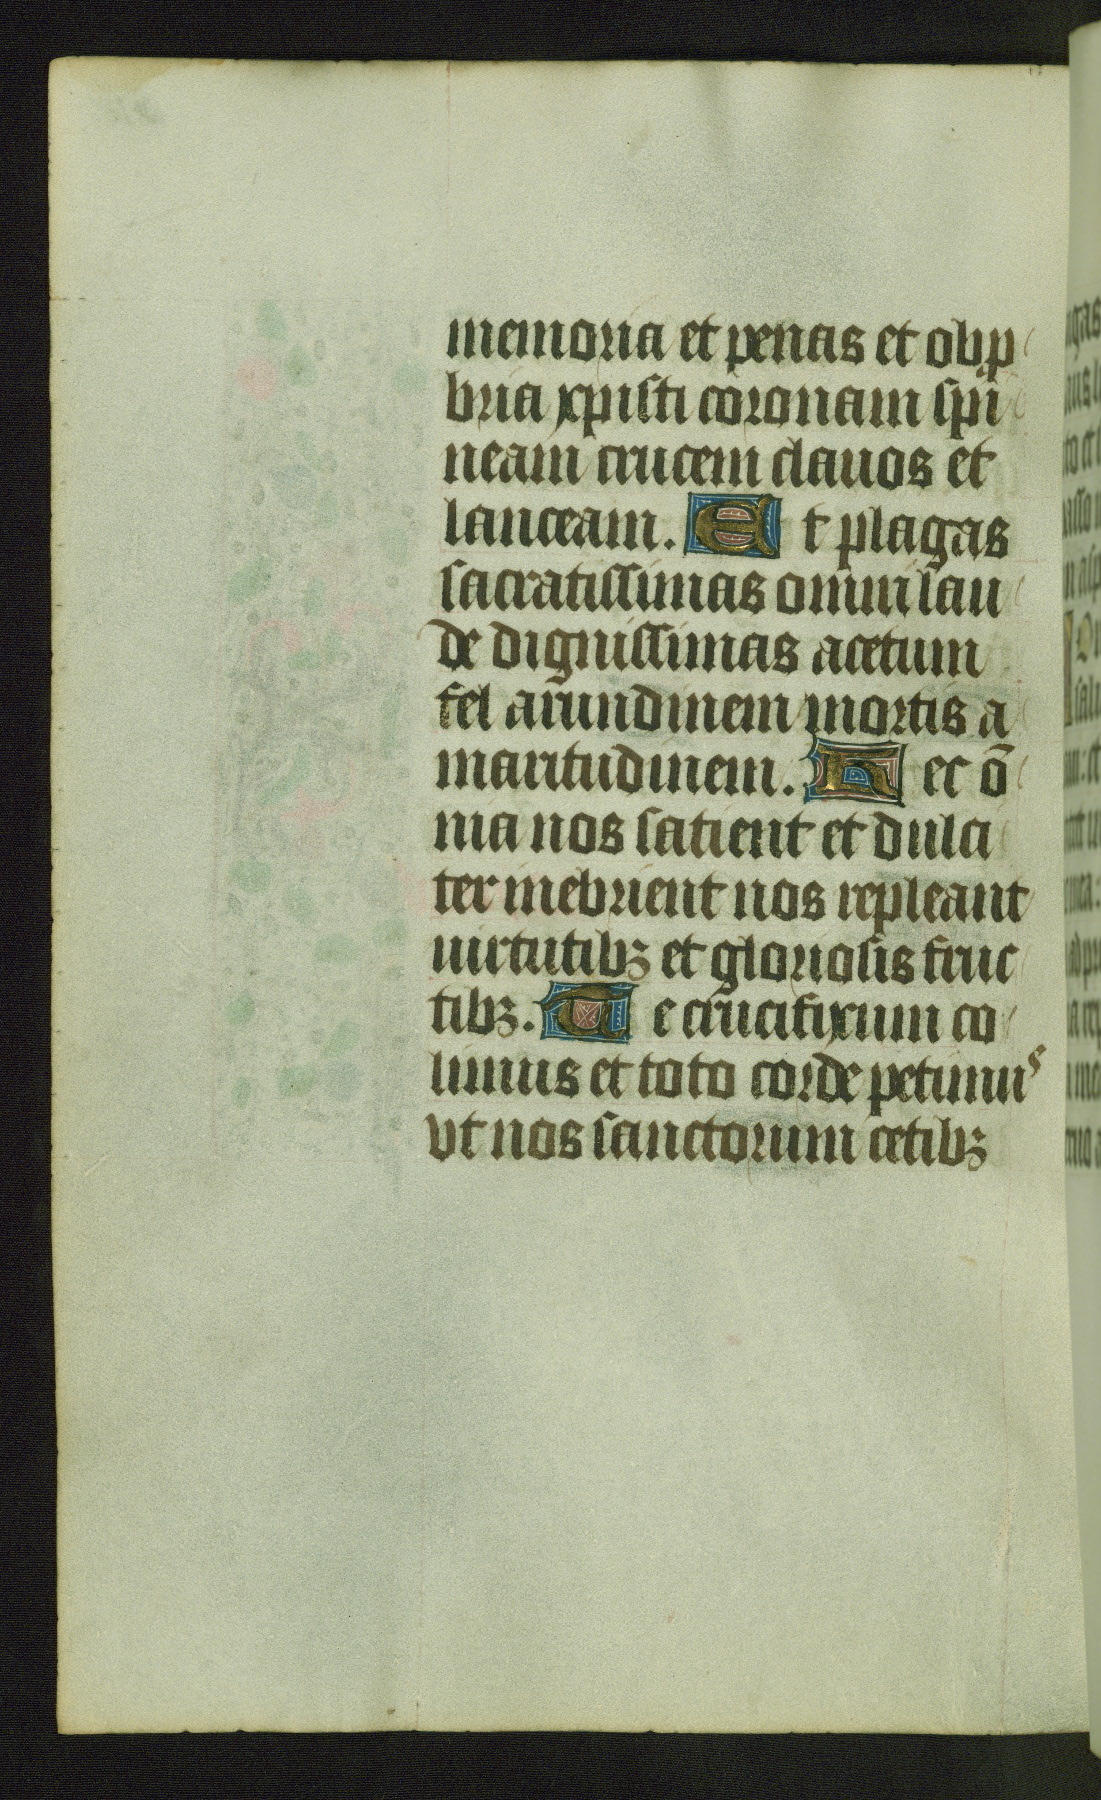 memoria et penas et obp
bria xpisti coronam spi
neam crucem clauos et
lanceam. Et plagas
sacratissimas omni lau
de dignissimas acetum
fel arundinem mortis a
maritudinem. Hec ō
nia nos satient et dulci
ter inebrient nos repleant
uirtutibꝫ et gloriosis fruc
tibꝫ. Te crucifixum co
limus et toto corde petimus
vt nos sanctorum cetibꝫ